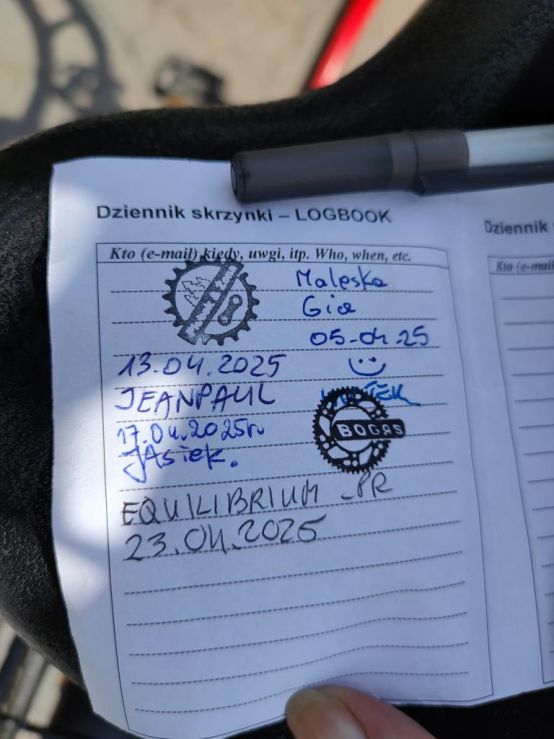 Dziennik skrzynki – LOGBOOK
Kto (e-mail) kiedy, uwgi, itp. Who, when, etc.
Maleska
Gia
05-04.25
13.04.2025
JEANPAUL
BOGAS
17.04.2025r
JAsiek.
EQUILIBRIUM_PR
23.04.2025
Dziennik
Kto (e-mail